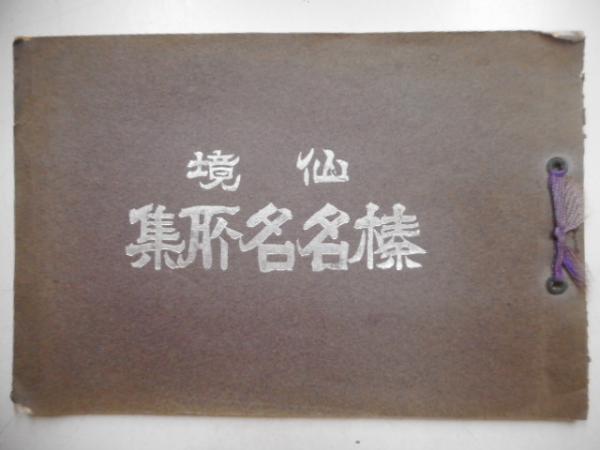 仙境
榛名名所集